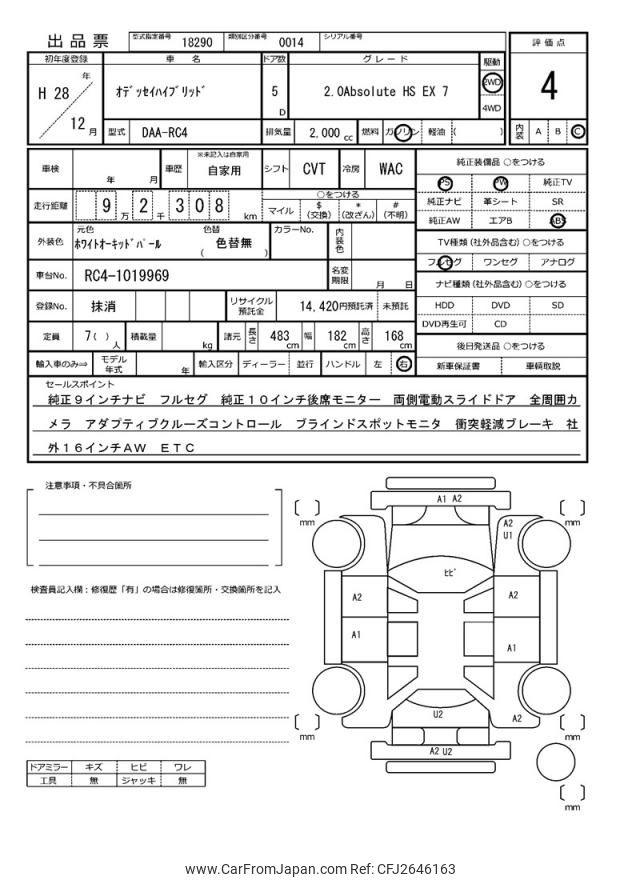 出品票
型式指定番号 18290 類別区分番号 0014 シリアル番号
評価点
4
内装 A B C
初年度登録 車名 ドア数 グレード 駆動
H 28 年 12 月
ｵﾃﾞｯｾｲﾊｲﾌﾞﾘｯﾄﾞ
5 D
2.0Absolute HS EX 7
2WD
4WD
型式 DAA-RC4 排気量 2,000 cc 燃料 ガソリン 軽油 ( )
車検 年 月 車歴 ※未記入は自家用 自家用 シフト CVT 冷房 WAC
走行距離 9 万 2 千 3 0 8 km
○をつける
マイル $(交換) *(改ざん) #(不明)
外装色 元色 ﾎﾜｲﾄｵｰｷｯﾄﾞﾊﾟｰﾙ 色替 ( 色替無 ) カラーNo. 内装色
車台No. RC4-1019969 名変期限 月 日
登録No. 抹消 リサイクル預託金 14,420円預託済 未預託
定員 7( ) 人 積載量 kg 諸元 長さ 483 cm 幅 182 cm 高さ 168 cm
輸入車のみ⇒ モデル年式 年 輸入区分 ディーラー 並行 ハンドル 左 右
純正装備品 ○をつける
PS PW 純正TV
純正ナビ 革シート SR
純正AW エアB ABS
TV種類 (社外品含む) ○をつける
フルセグ ワンセグ アナログ
ナビ種類 (社外品含む) ○をつける
HDD DVD SD
DVD再生可 CD
後日発送品 ○をつける
新車保証書 車輌取説
セールスポイント
純正９インチナビ フルセグ 純正１０インチ後席モニター 両側電動スライドドア 全周囲カ
メラ アダプティブクルーズコントロール ブラインドスポットモニタ 衝突軽減ブレーキ 社
外１６インチＡＷ ＥＴＣ
注意事項・不具合箇所
検査員記入欄：修復歴「有」の場合は修復箇所・交換箇所を記入
ドアミラー キズ ヒビ ワレ
工具 無 ジャッキ 無
A1 A2
mm
mm
A2
U1
ﾋﾋﾞ
A2
A2
A1
A1
U2
A2
mm
mm
A2 U2
mm
www.CarFromJapan.com Ref: CFJ2646163